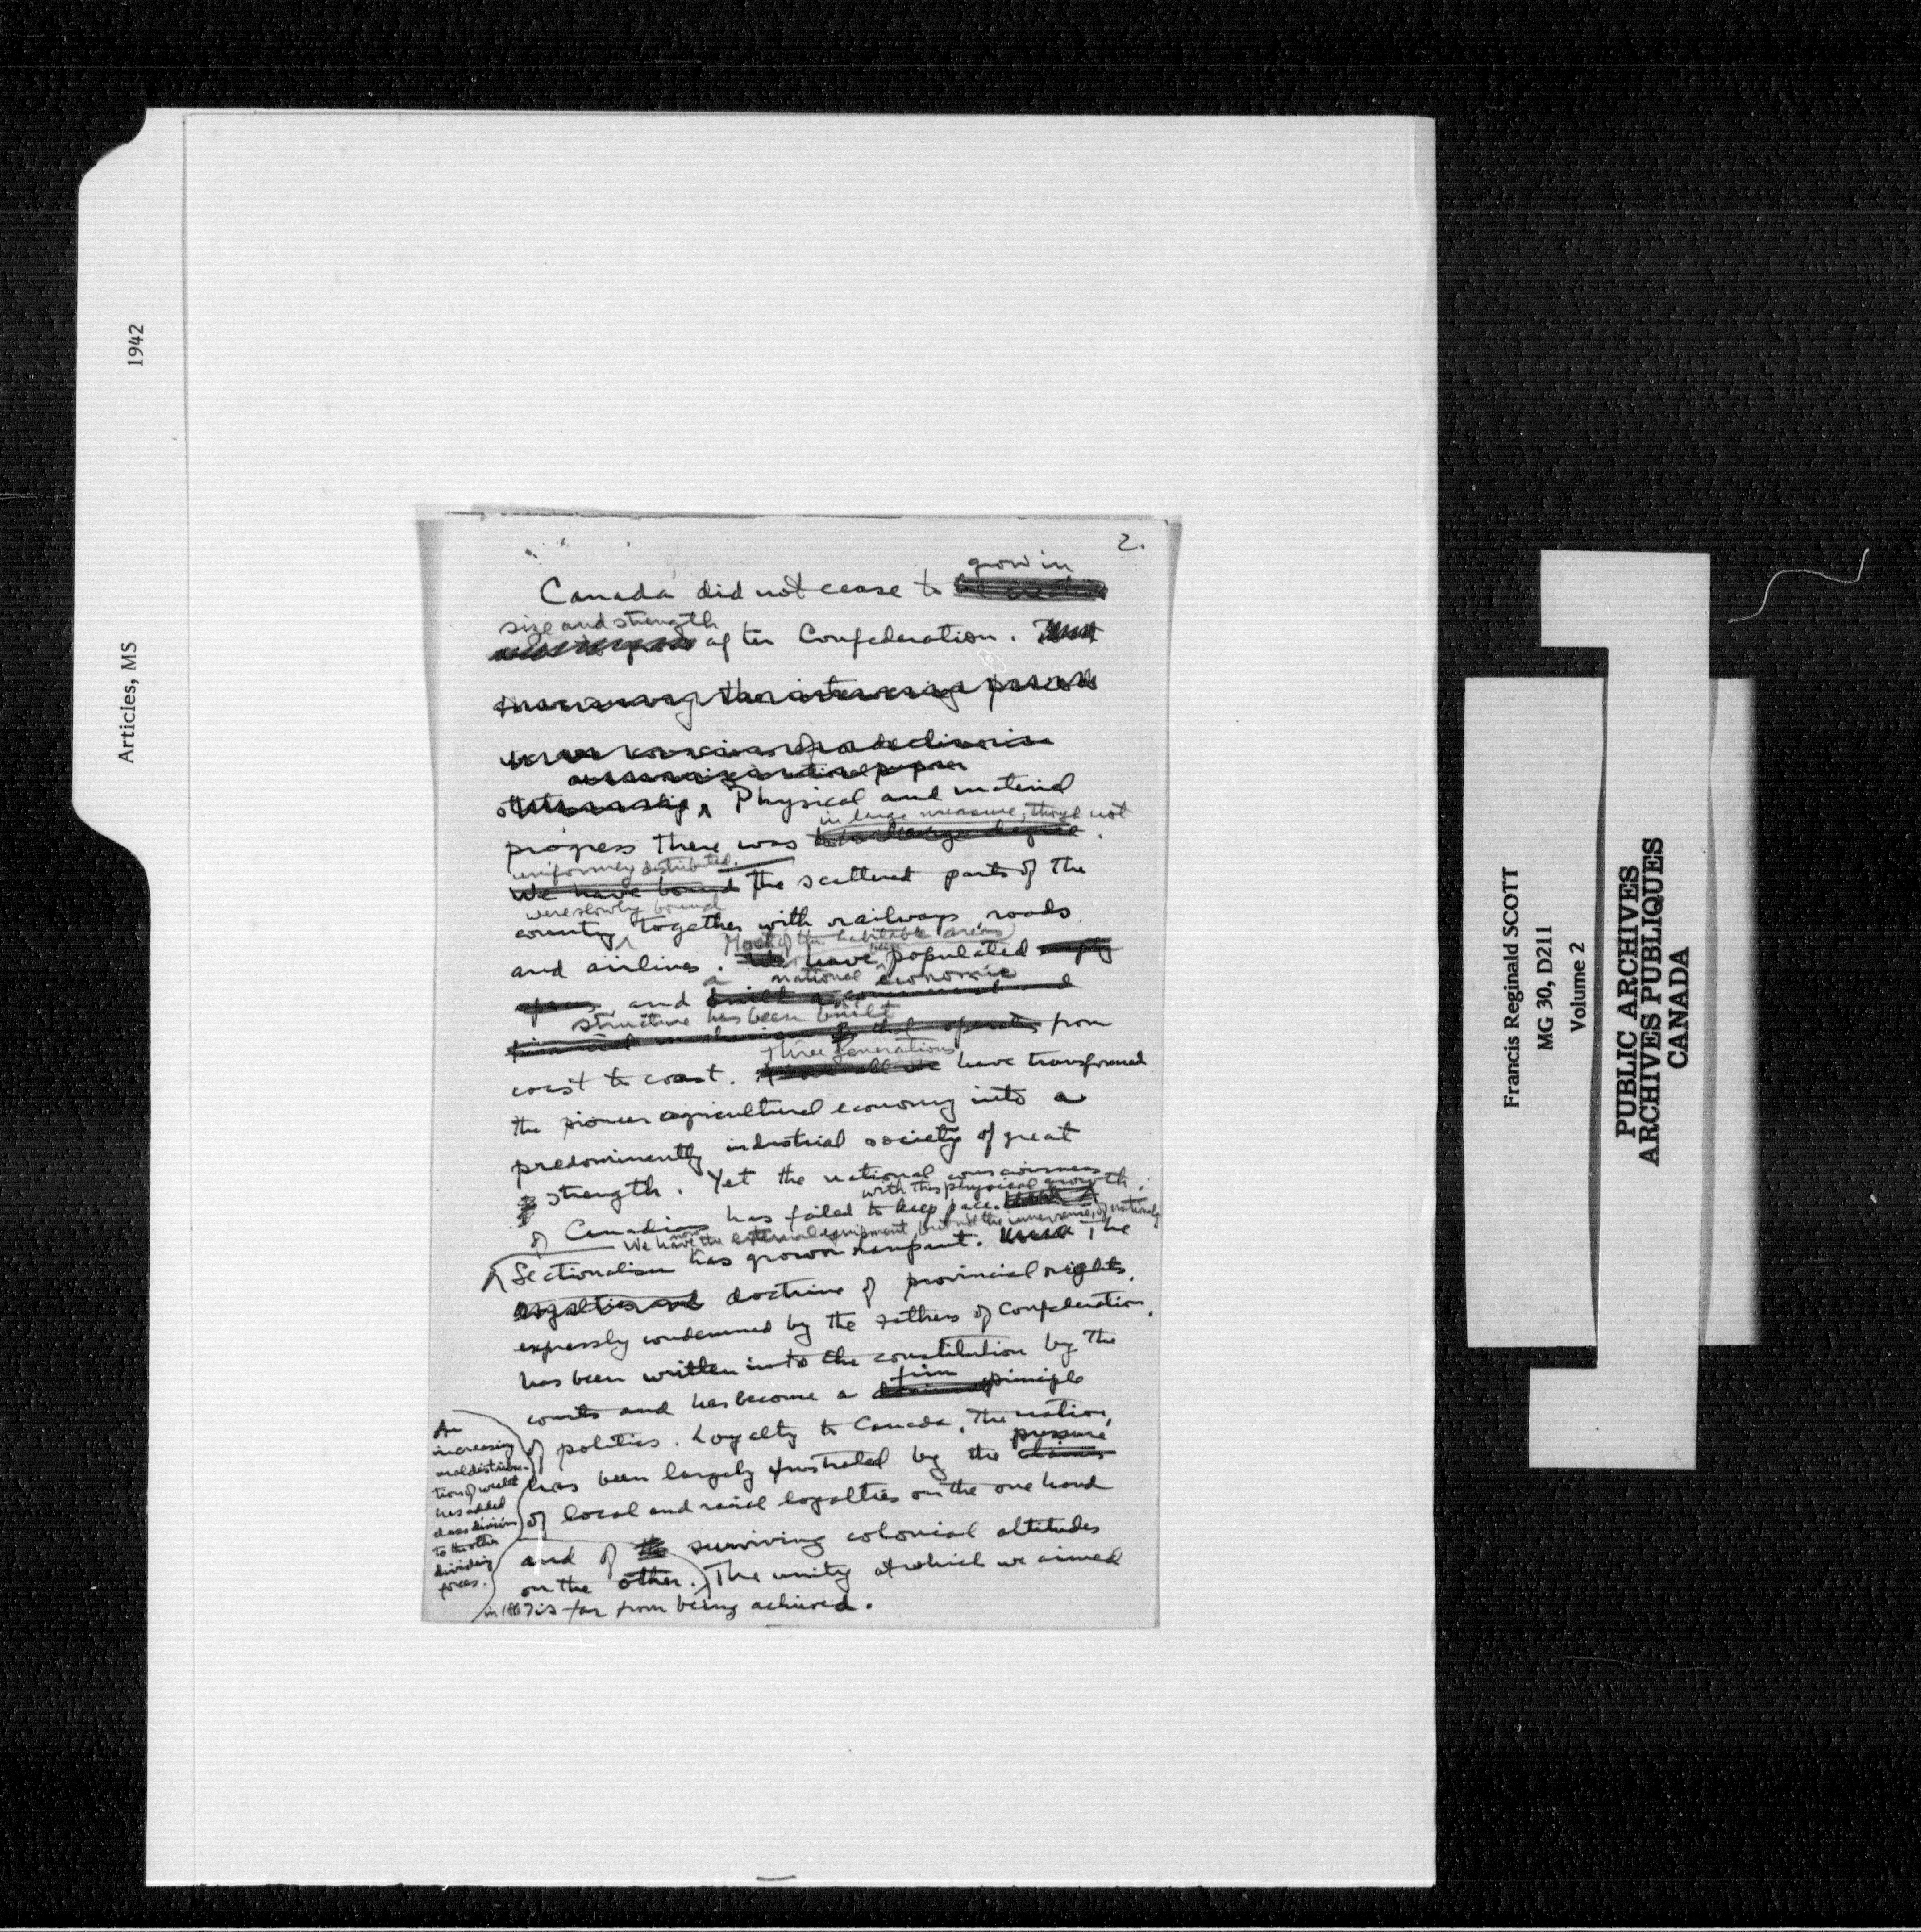 1942
Articles, MS
2.
grow in
Canada did not cease to
size and strength
after Confederation.
Physical and material
in large measure, though not
progress there was
uniformly distributed.
We have bound the scattered parts of the
were slowly bound
country together with railways, roads
Most of the habitable areas
and airlines. We have been populated empty
a national economic
spaces, and built a commercial and
structure has been built
financial that operates from
Three generations
coast to coast. Above all we have transformed
the pioneer agricultural economy into a
predominently industrial society of great
strength. Yet the national consciousness
with this physical growth.
of Canadians has failed to keep pace.
We have now the external equipment, but not the inner sense, of nationality
Sectionalism has grown rampant. The
loyalties and doctrine of provincial rights,
expressly condemned by the Fathers of Confederation,
has been written into the constitution by the
firm
courts and has become a principle
of politics. Loyalty to Canada, the nation,
pressure
has been largely frustrated by the claims
of local and racial loyalties on the one hand
and of the surviving colonial attitudes
on the other. The unity at which we aimed
in 1867 is far from being achieved.
An
increasing
maldistribu-
tion of wealth
has added
class division
to the other
dividing
forces.
Francis Reginald SCOTT
MG 30, D211
Volume 2
PUBLIC ARCHIVES
ARCHIVES PUBLIQUES
CANADA